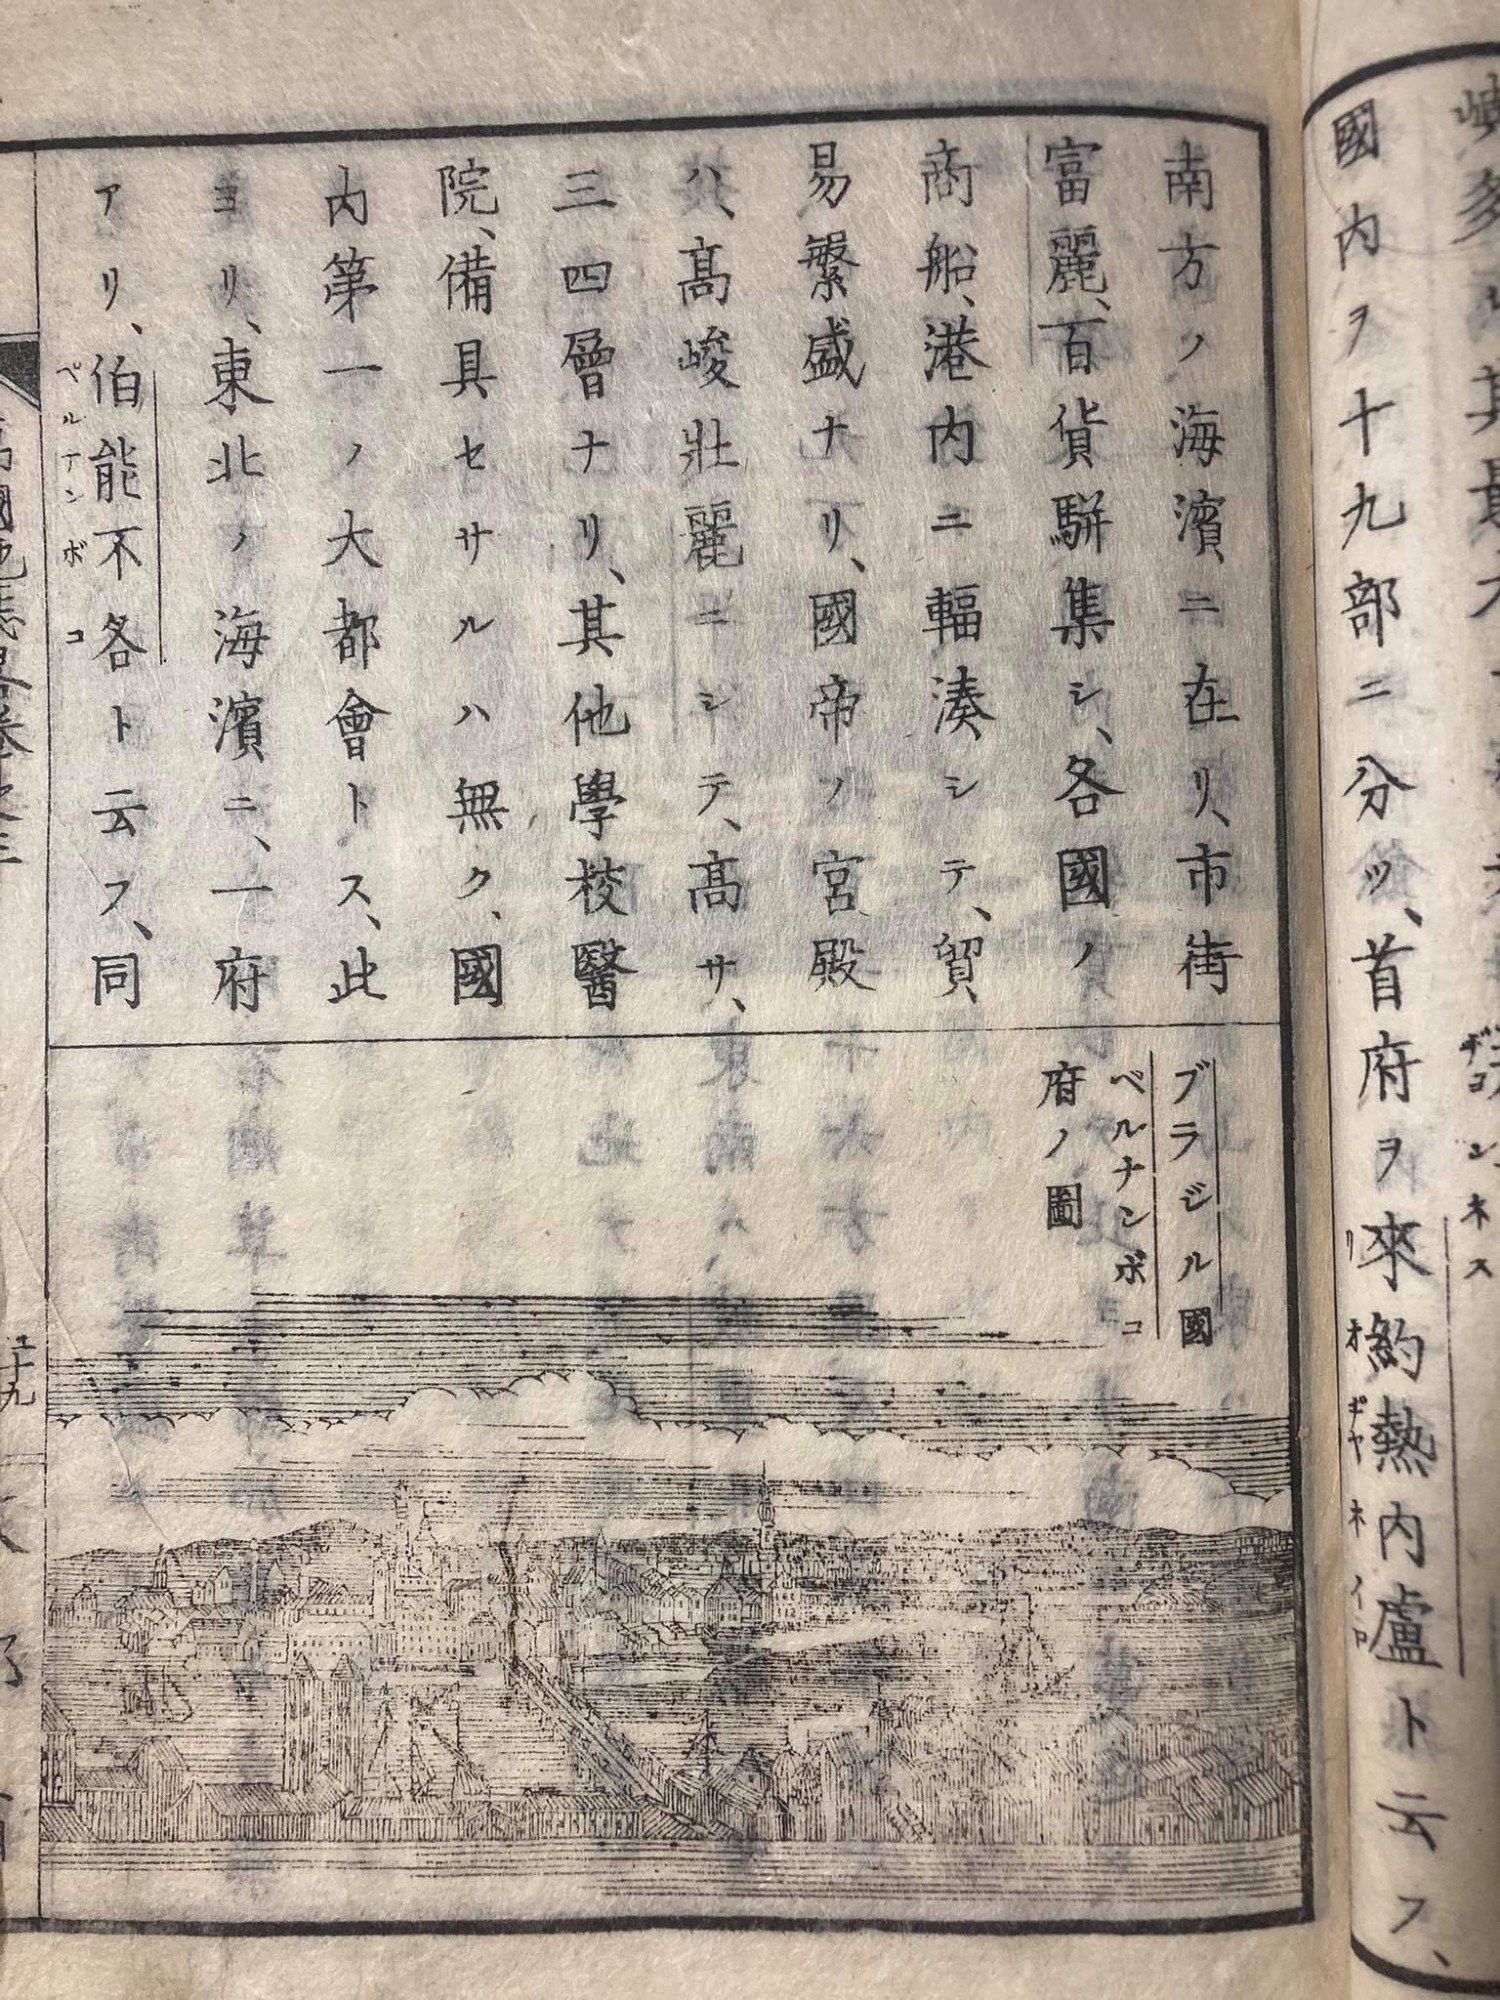 國内ヲ十九部ニ分ツ、首府ヲ來約熱内盧ト云フ、
リオギヤネイロ
南方ノ海濱ニ在リ、市街
富麗、百貨駢集シ、各國ノ
商船、港内ニ輻湊シテ、貿
易繁盛ナリ、國帝ノ宮殿
ハ、髙峻壯麗ニシテ、髙サ、
三四層ナリ、其他學校醫
院、備具セサルハ無ク、國
内第一ノ大都會トス、此
ヨリ、東北ノ海濱ニ、一府
アリ、伯能不各ト云フ、同
ペルナンボコ
ブラジル國
ペルナンボコ
府ノ圖